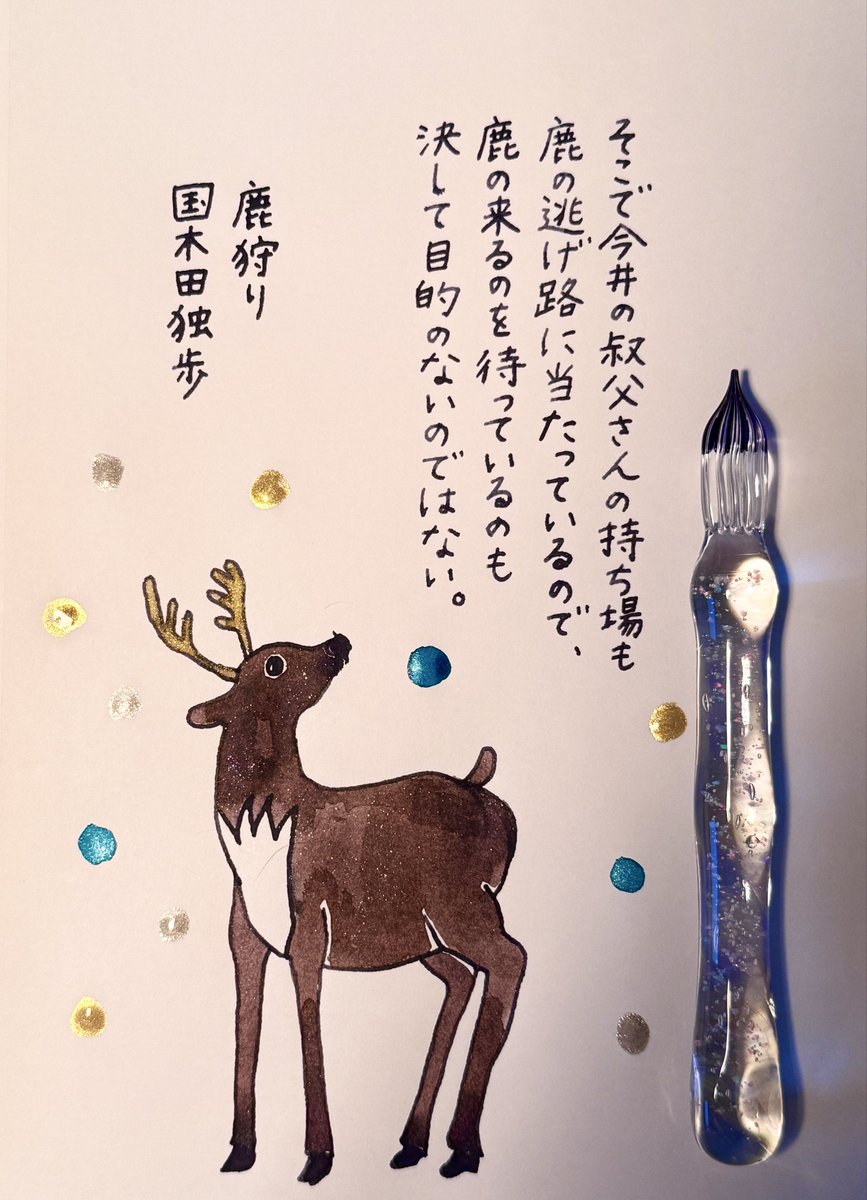 そこで今井の叔父さんの持ち場も
鹿の逃げ路に当たっているので、
鹿の来るのを待っているのも
決して目的のないのではない。
鹿狩り
国木田独歩